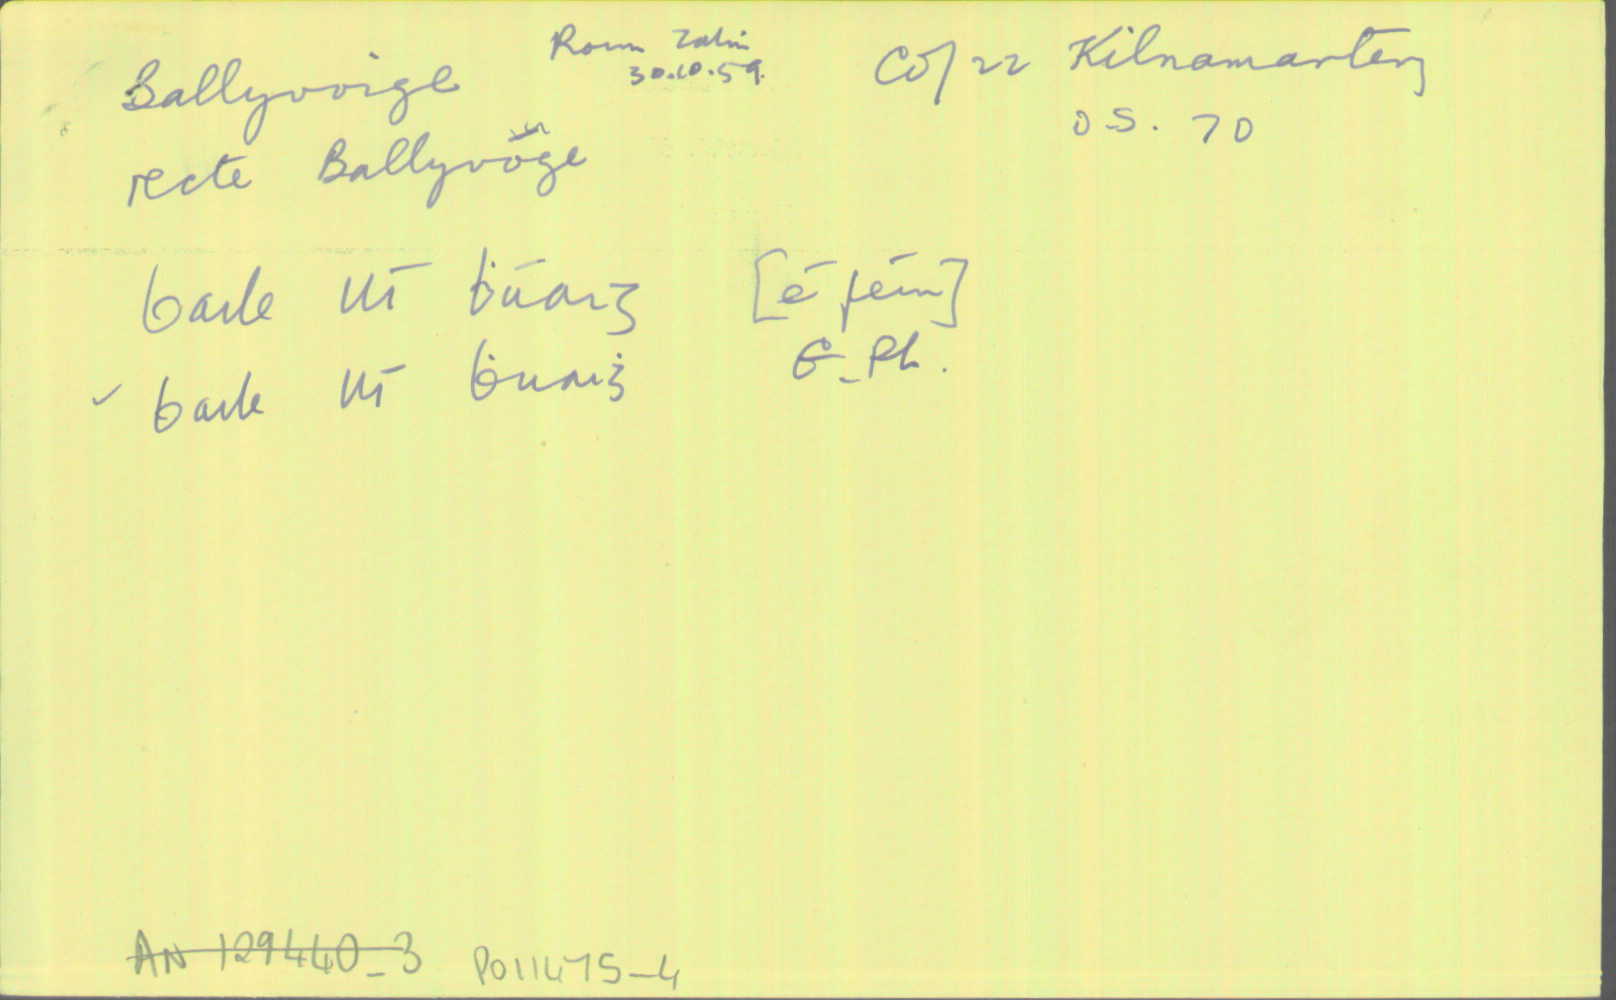 Ballyvoige
30.10.59.
Co/22 Kilnamartery
O.S. 70
recte Ballyvōge
baile Uí ḃúaig [é féin]
✓ baile Uí ḃuaiġ G-Ph.
AN 129440-3 P011475-4